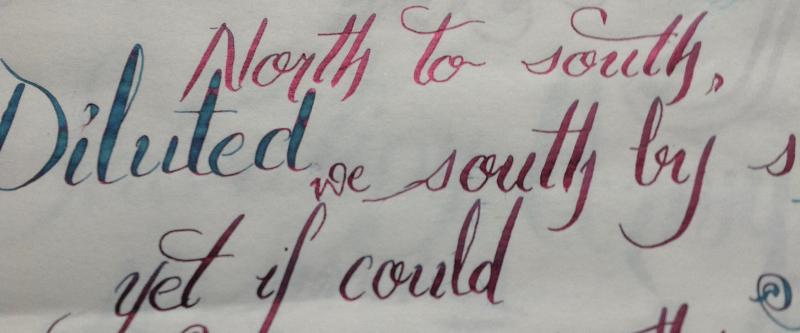 North to south,
Diluted we south by s
yet if could